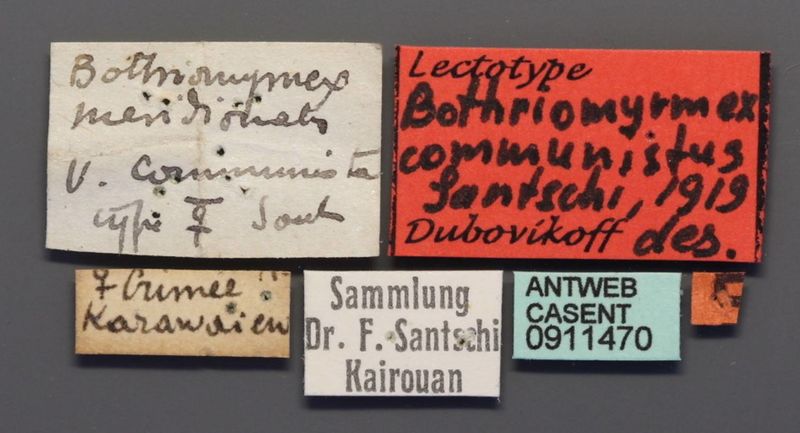 Bothriomyrmex
meridionalis
v. communista
type ☿ Sants
Lectotype
Bothriomyrmex
communistus
Santschi, 1919
Dubovikoff des.
☿ Crimee
Karawaiew
Sammlung
Dr. F. Santschi
Kairouan
ANTWEB
CASENT
0911470